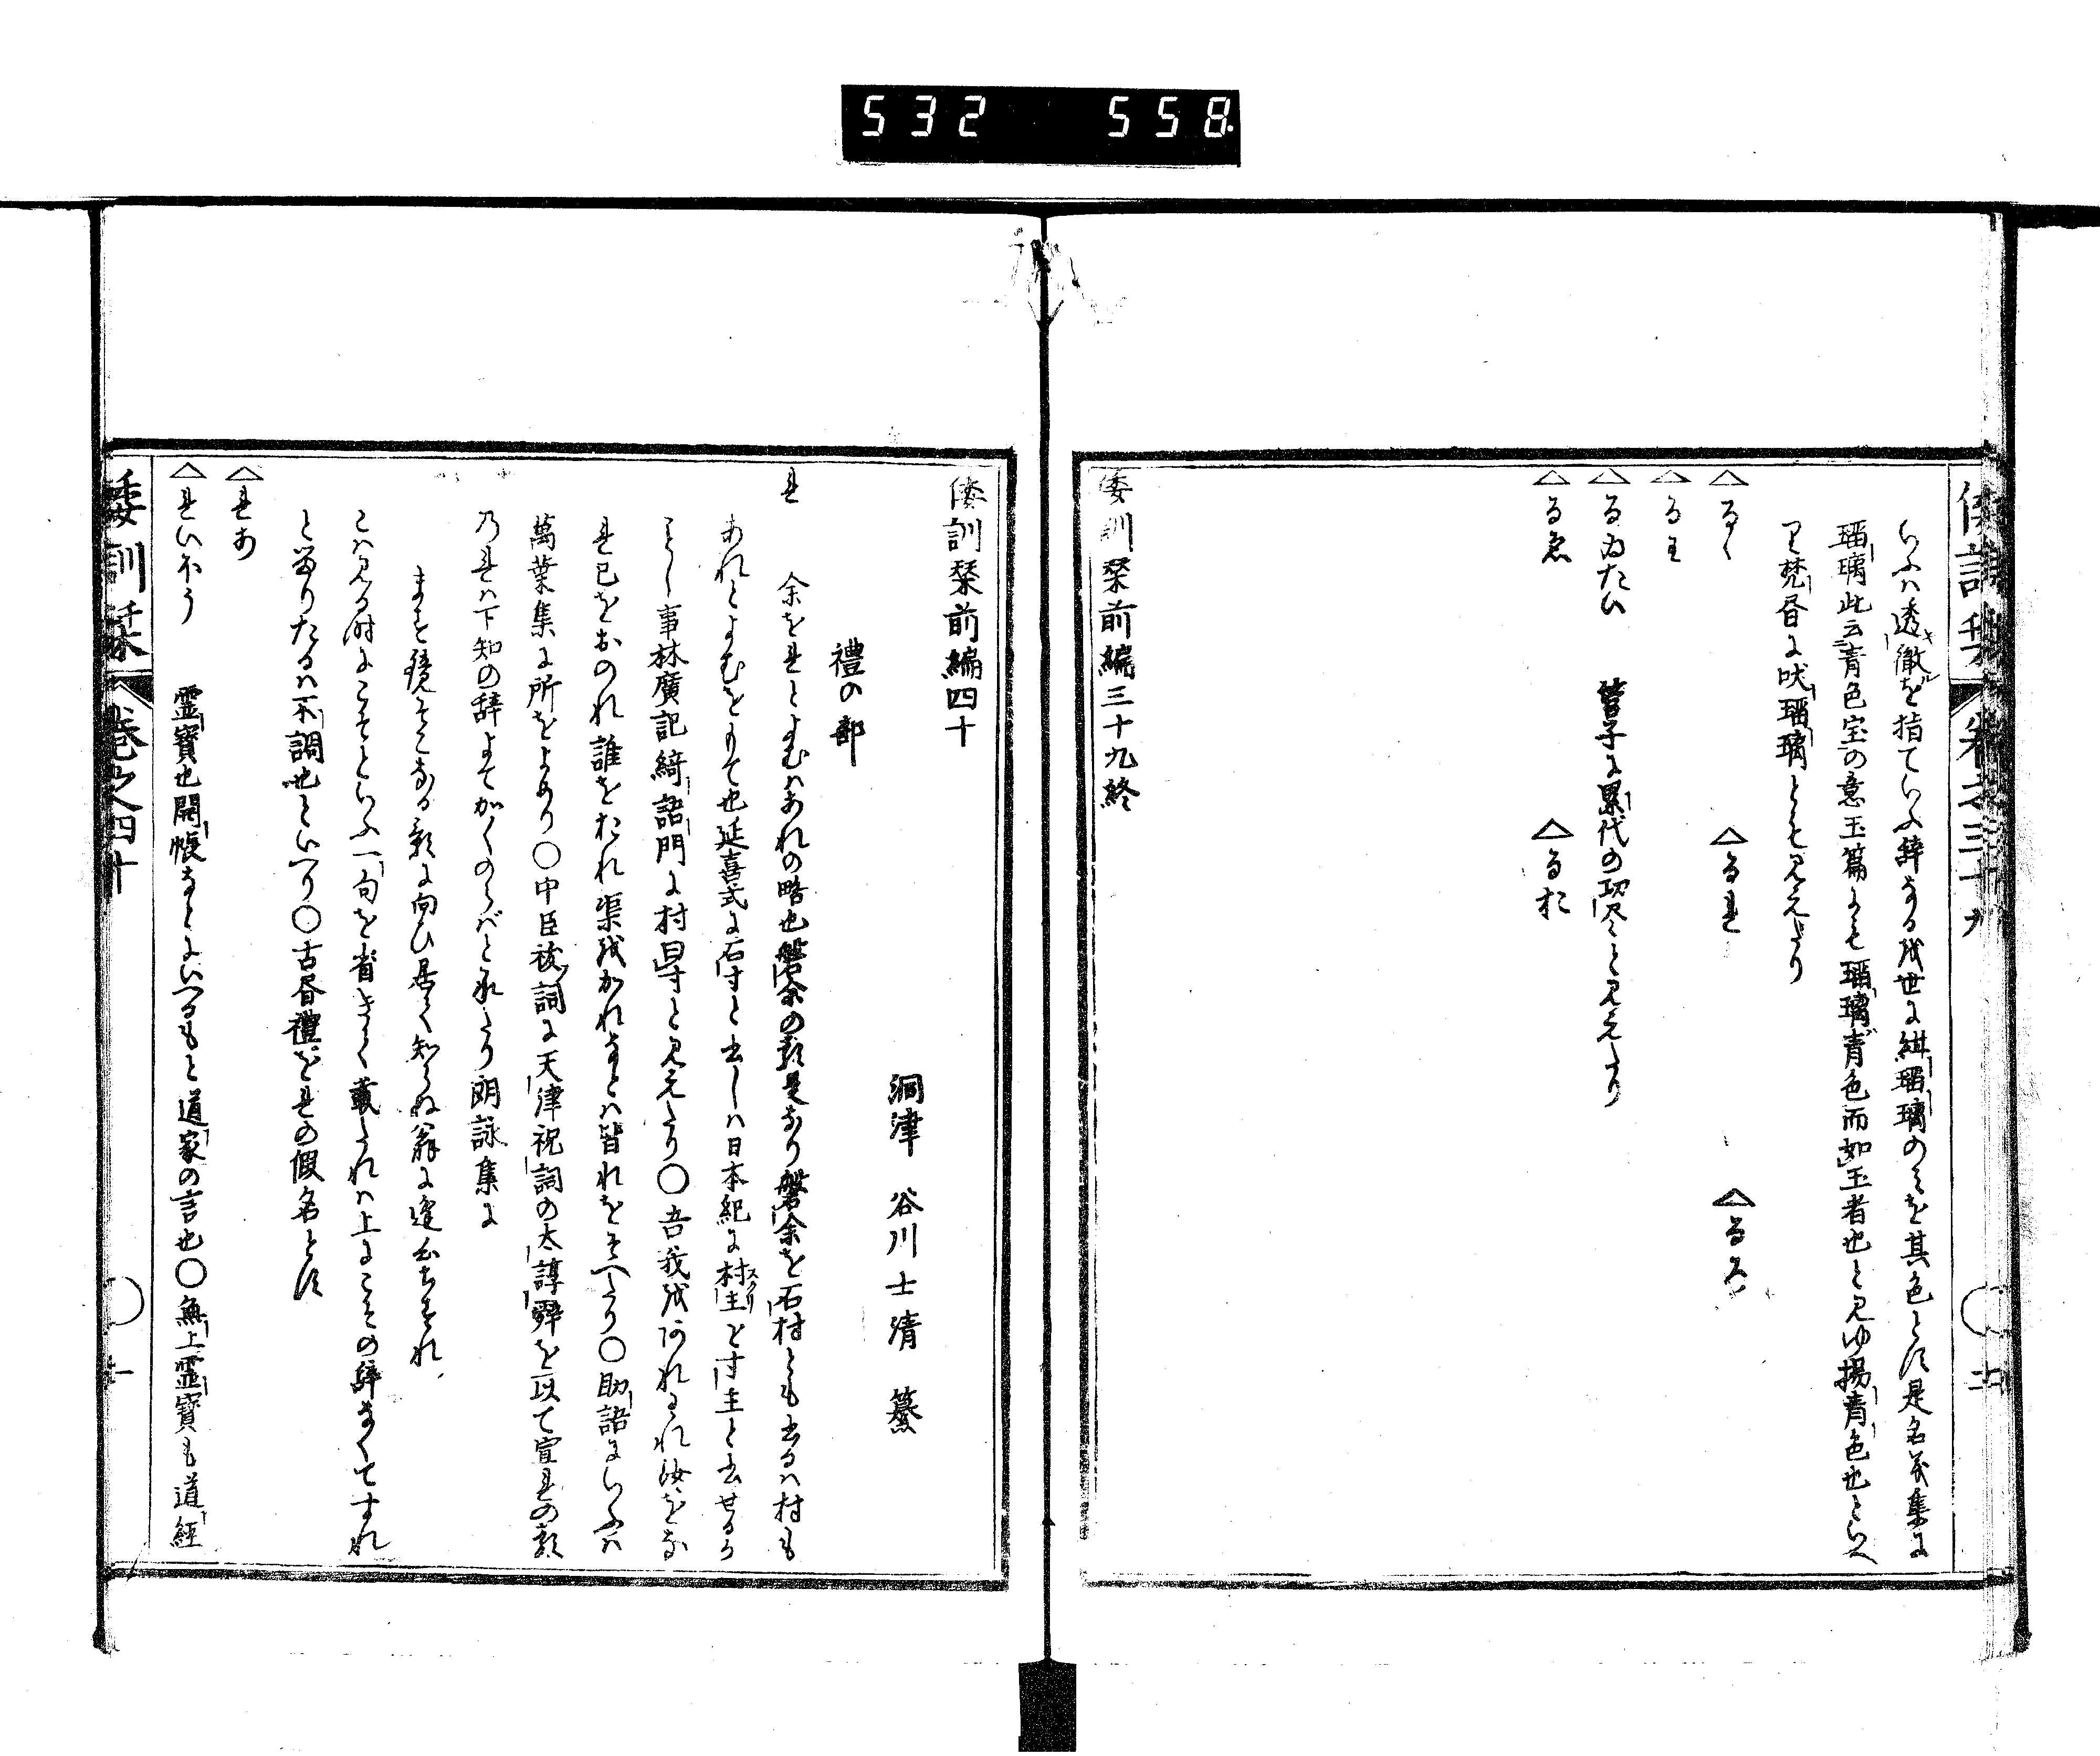 532 558
倭訓栞 卷之三十九
いふハ透徹を指ていふ辞なる故世に紺瑠璃のミを其色とす是名義集に
瑠璃此云青色宝の意玉篇にも瑠璃青色而如玉者也と見ゆ揚青色也といへ
り梵書に吠瑠璃とも見えたり
△るく △るれ △るろ
△るわ
△るゐたい 管子に累代の
と見えたり
△るゑ △るお
倭訓栞前編三十九終
倭訓栞前編四十
洞津 谷川士清 纂
禮の部
れ 余をれとよむハあれの略也磐余の類是なり磐余を石村とも書るハ村も
あれとよむをもて也延喜式に石寸と書しハ日本紀に村主を寸主と書せるか
ことし事林廣記綺語門に村曰寸と見えたり○吾我をわれ
汝をな
れ己をおのれ誰をたれ渠をかれなとハ皆れをそへたり○助語にいふハ
萬葉集に所をよめり○中臣祓詞に天津祝詞の太諄辞を以て宣れの類
のれハ下知の辞よてかくのらバと承たり朗詠集に
ます鏡そこなる影に向ひ居て知らぬ翁に逢心ちすれ
こハ見る時にこそといふ一句を省きて載たれハ上にこその辞なくてすれ
と留りたるハ不調也といへり○古昔禮をれの假名とす
△れあ
△れいほう 霊寶也開帳なとにいへるもと道家の言也○無上霊寶も道経
倭訓栞 卷之四十 一